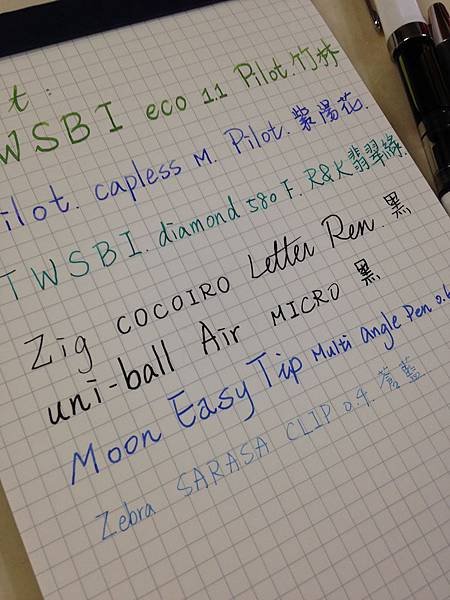 t.
WSBI eco 1.1 Pilot.竹林
ilot. capless M. Pilot. 紫陽花.
TWSBI. diamond 580 F. R&K翡翠綠.
Zig COCOIRO Letter Pen. 黑
uni-ball Air MICRO 黑
Moon Easy Tip Multi angle Pen 0.6
Zebra SARASA CLIP 0.4. 蒼藍